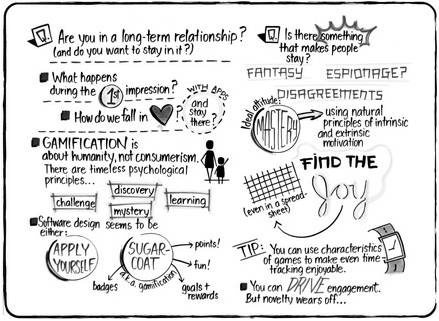 Q. Are you in a long-term relationship?
(and do you want to stay in it?)
What happens
during the 1st impression?
How do we fall in ?
WITH APPS
and
stay
there?
GAMIFICATION is
about humanity, not consumerism.
There are timeless psychological
principles...
discovery
challenge
learning
mystery
Software design seems to be
either:
APPLY
YOURSELF
SUGAR-
COAT
a.k.a. gamification
points!
fun!
badges
goals +
rewards
Q. Is there something
that makes people
stay?
FANTASY ESPIONAGE?
DISAGREEMENTS
Ideal attitude:
MASTERY
using natural
principles of intrinsic
and extrinsic
motivation
FIND THE
Joy
(even in a spread-
sheet)
TIP: You can use characteristics
of games to make even time
tracking enjoyable.
You can DRIVE engagement.
But novelty wears off...